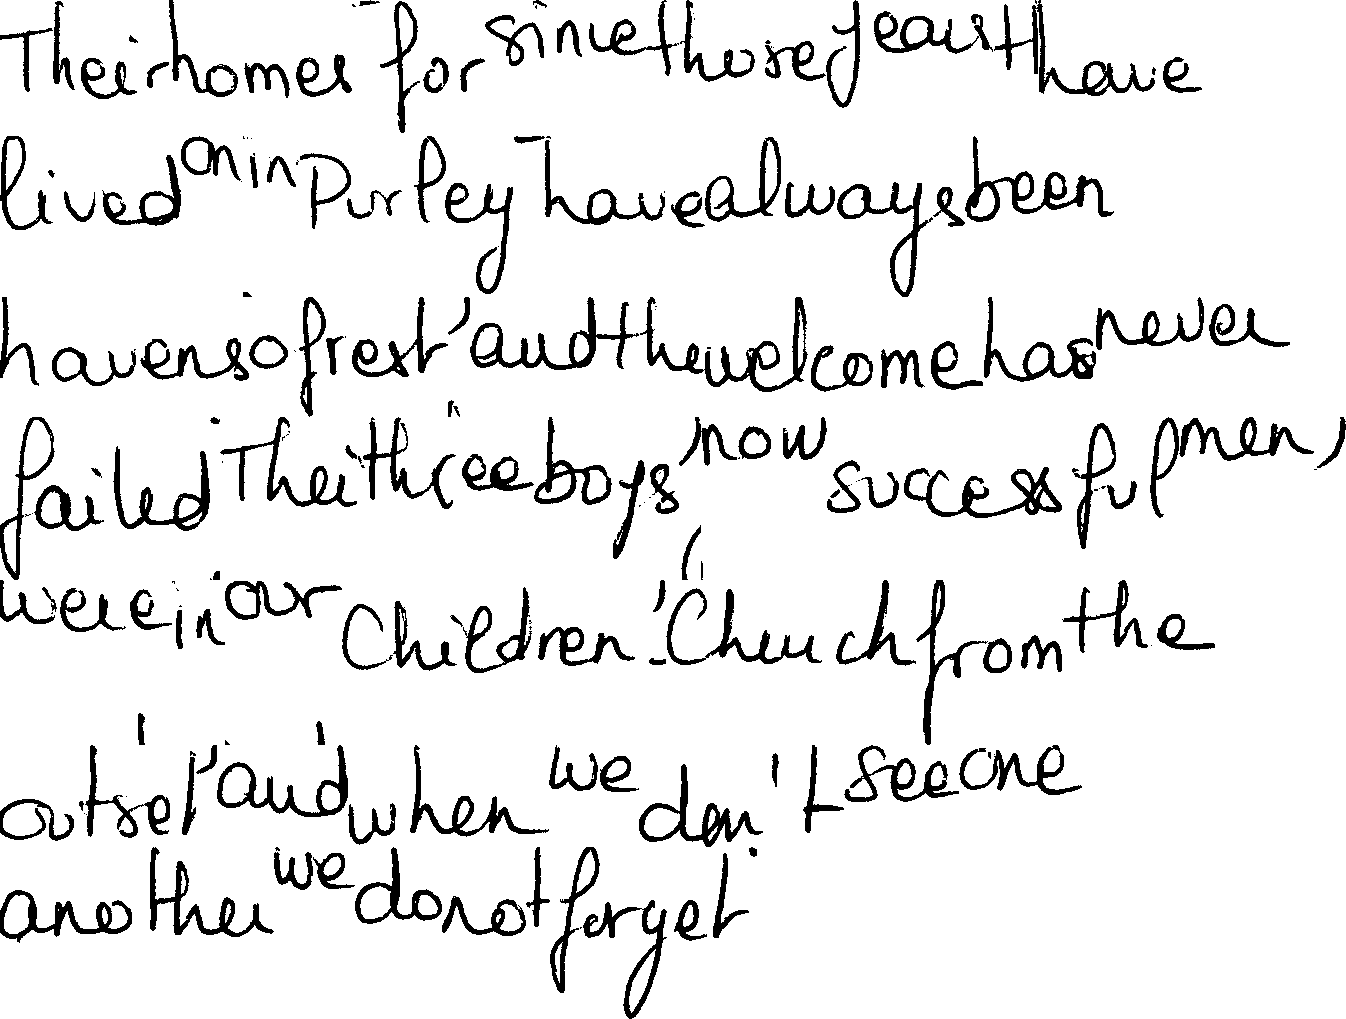 Their homes for since those years I have
lived on in Purley have always been
havens of rest, and the welcome has never
failed. Their three boys, now successful men,
were in our Children's Church from the
outset, and when we don't see one
another we do not forget.